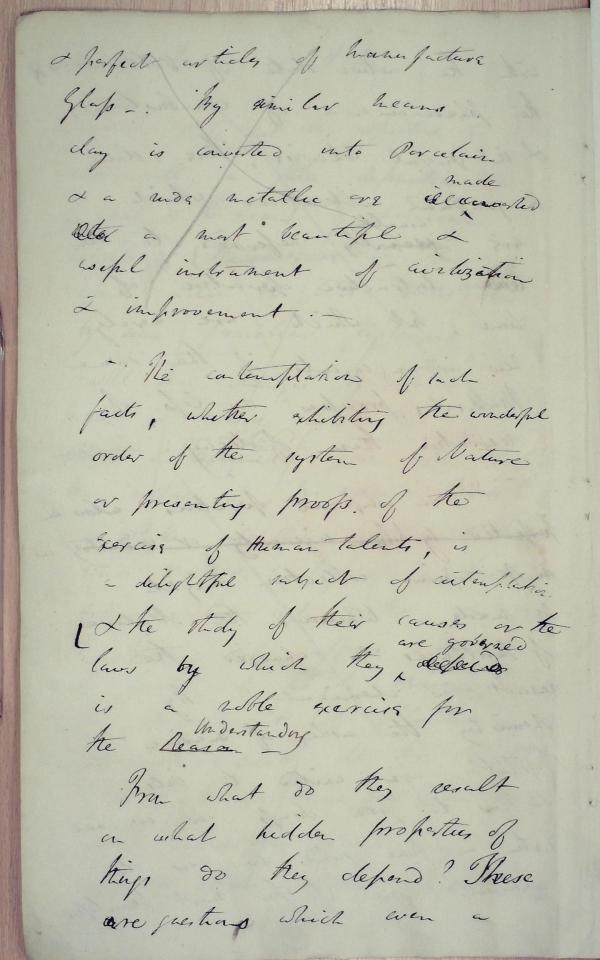 & perfect articles of manufacture
Glass -. By similar means
clay is converted into Porcelain
made
& a rude metallic ore converted
a most beautiful &
useful instrument of civilization
& improvement. -
- The contemplation of such
facts, whether exhibiting the wonderful
order of the system of Nature
or presenting proofs. of the
exercise of Human talents, is
a delightful subject of contemplation
& the study of their causes or the
are governed
laws by which they depend
is a noble exercise for
Understanding
the Reason -
From what do they result
on what hidden properties of
things do they depend? These
are questions which even a